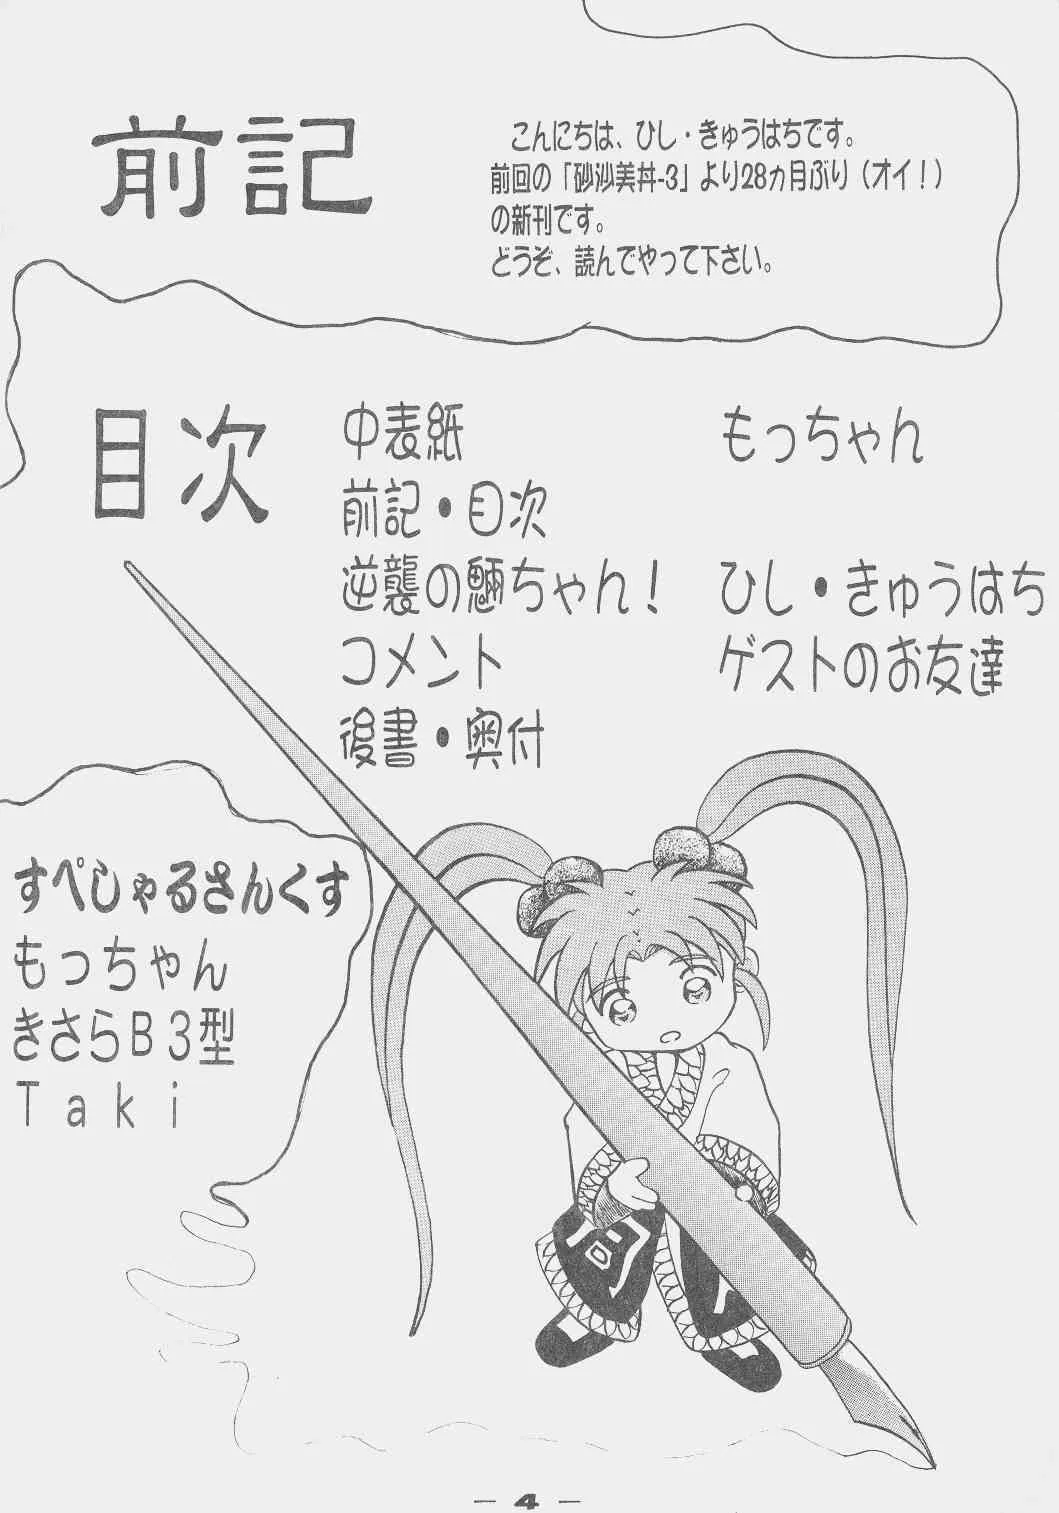 前記
こんにちは、ひし・きゅうはちです。
前回の「砂沙美丼-3」より28ヵ月ぶり（オイ！）
の新刊です。
どうぞ、読んでやって下さい。
目次
中表紙 もっちゃん
前記・目次
逆襲の魎ちゃん！ ひし・きゅうはち
コメント ゲストのお友達
後書・奥付
すぺしゃるさんくす
もっちゃん
きさらB3型
Taki
— 4 —